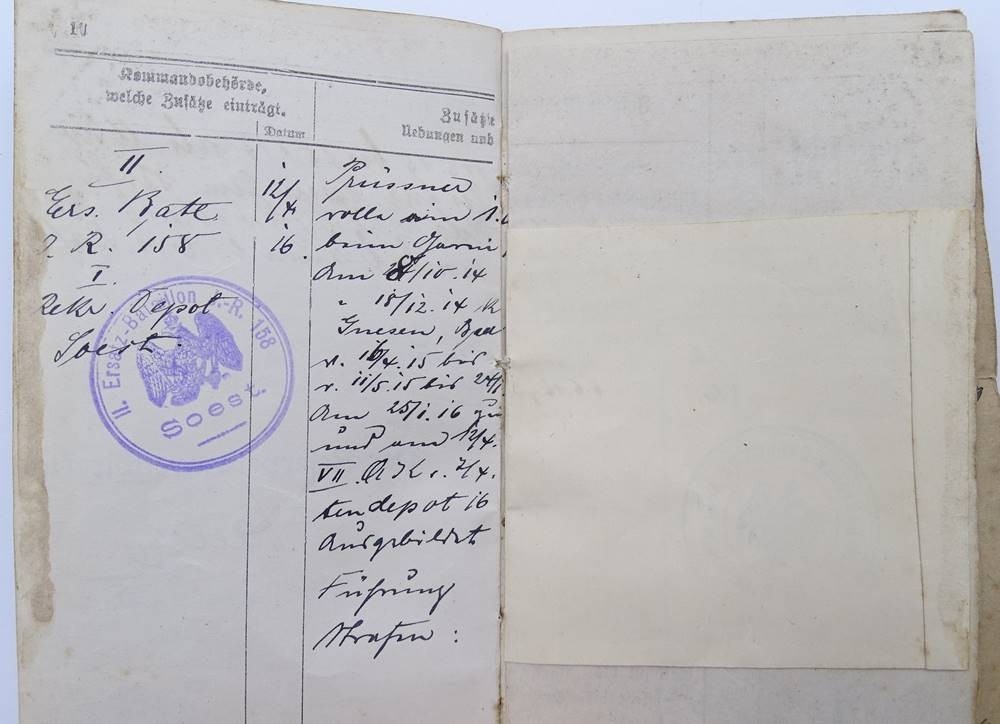 10
Kommandobehörde,
welche Zusätze einträgt.
Datum
Zusätze
Uebungen und
II.
Ers. Batl.
J. R. 158
I.
Rekr. Depot
Soest.
12/4
16.
Prüssner
rolle
beim
Am 8/10.14
" 18/12.14
Gnesen,
v. 16/4.15 bis
v. 11/5.15 bis 24/1
Am 25/1.16
und am 12/4.
VII. A K v. 7/4.
tendepot 16
Ausgebildet
Führung
Strafen:
II. Ersatz-Bataillon J.-R. 158
Soest.